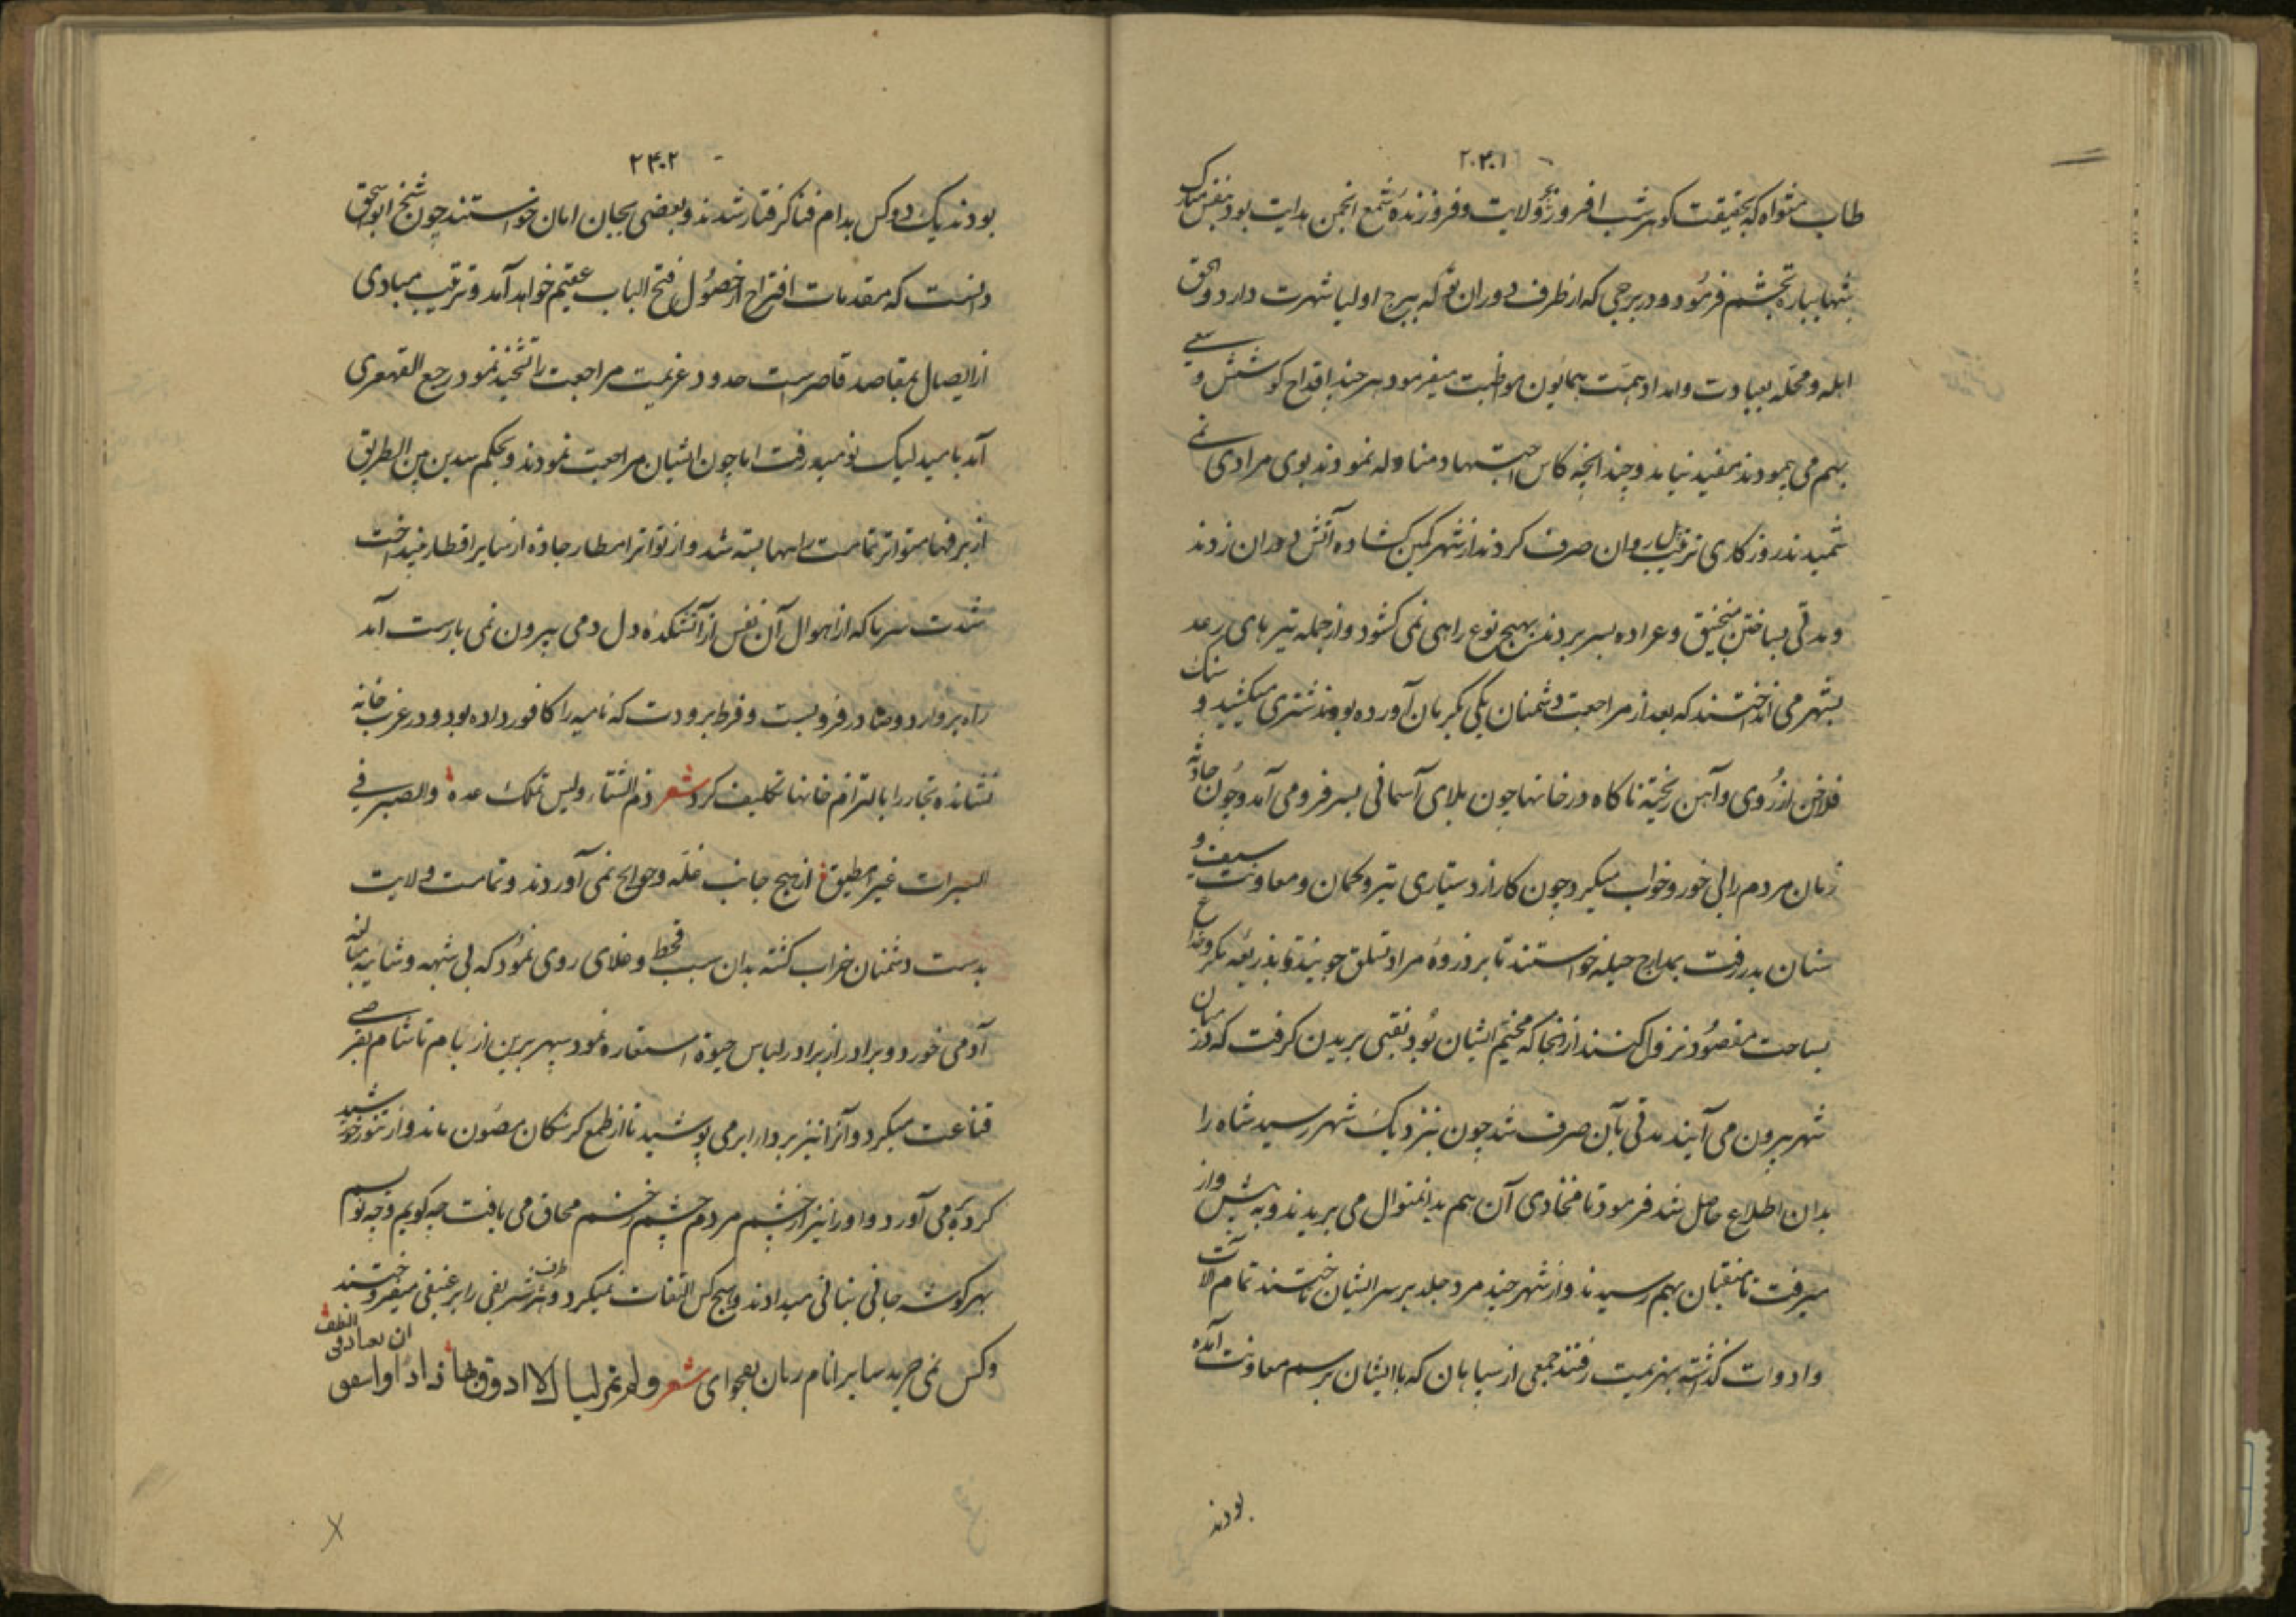 ۲۰۴۰۱
طاب مثواه که بحقیقت گوهر شب افروز ولایت و فروزنده شمع انجمن هدایت بود بنفس مبارک
شبها بباره تجشم فرمود و در برجی که از طرف که ببرج اولیا شهرت دارد وثاق
ابله و محله بعبادت و امداد همت همایون مواظبت میفرمود هر چند باقداح کوشش و سعی
بهم می پیمودند مفید نیامد و چندانچه کاس اجتهاد مناوله نمودند بوی مرادی نمی
شمیدند روزکاری صرف کردند از شهر کمین کشاده آتش دران زدند
و مدتی بساختن منجنیق و عراده بسر بردند بهیچ نوع راهی نمی کشود و از جمله تیرهای رعد
بشهر می انداختند که بعد از مراجعت دشمنان یکی بکرمان آورده بودند شتری میکشید و سنک
فلاخن از روی و آهن ریخته ناکاه در خانها چون بلای آسمانی بسر فرو می آمد و چون حادثه
زمان مردم را بی خور و خواب میکرد چون کار از دستیاری تیر و کمان و معاونت سیف و
سنان بدر رفت بمدارج حیله خواستند تا بر ذروه مراد تسلق جویند و تا بذریعه مکر و خداع
بساحت مقصود نزول کنند از انجا که مخیم ایشان بود نقبی بریدن کرفت که در میان
شهر بیرون می آیند مدتی بآن صرف شد چون بنزدیک شهر رسید شاه را
بدان اطلاع حاصل شد فرمود تا محاذی آن هم بدانمنوال می بریدند و به پیش واز
میرفت تا نقبان بهم رسیدند و از شهر چند مرد جلد بر سر ایشان تاختند تمام آلات
و ادوات کذاشته بهزیمت رفتند جمعی از سپاهان که باایشان برسم معاونت آمده
بودند
۲۴۰۲
بودند یک دو کس بدام فنا کرفتار شدند و بعضی بجان امان خواستند چون شیخ ابواسحق
دانست که مقدمات اقتراح از حصول فتح الباب عقیم خواهد آمد و ترتیب مبادی
از ایصال بمقاصد قاصر است حدود عزیمت مراجعت را تشحیذ نمود رجع القهقری
آمد بامید لیک نومید رفت اما چون ایشان مراجعت نمودند و بحکم سدین من الطریق
از برفهاء متواتر تمامت راهها بسته شد و از تواتر امطار جاده از سایر اقطار بینداخت
شدت سرما که از اهوال آن نفس از آتشکده دل دمی بیرون نمی یارست آمد
راه بر وارد و صادر فرو بست و فرط برودت که نامیه را کافور داده بود و در غرب خانه
نشانده تجار را بالتزام خانها تکلیف کرد شعر ذم الشتاء ولیس تملک عده والصبر فی
السبرات غیر مطیق از هیچ جانب غله و حوایج نمی آوردند و تمامت ولایت
بدست دشمنان خراب کشته بدان سبب قحط و غلای روی نمود که بی شبهه و شایبه مبالغه
آدمی خورد و برادر از برادر لباس حیوة استعاره نمود سپهر برین از بام تا شام بقرصی
قناعت میکرد و آنرا نیز بردار ابر می پوشید تا از طمع کرسنکان مصون ماند و از تنور خورشید
کرده می آورد و او را نیز از چشم مردم چشم زخم محاق می یافت چه کویم و چه نویسم
بهر کوشه جانی بنانی میدادند و هیچ کس التفات نمیکرد و هر طرف شریفی را برغیفی میفروختند
و کس نمی خرید سایر انام زبان بفحوای شعر